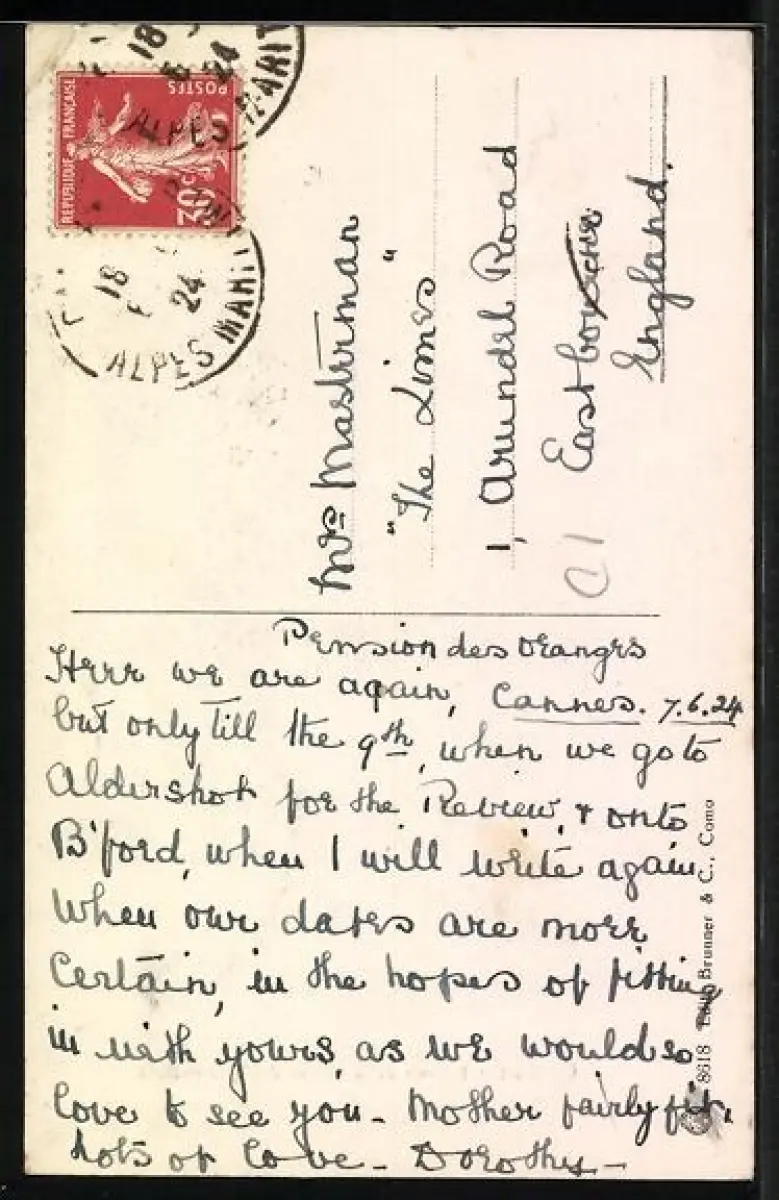 Pension des Oranges
Cannes. 7.6.24
Here we are again,
but only till the 9th, when we go to
Aldershot for the Review, & onto
B'ford, when I will write again
When our dates are more
Certain, in the hopes of fitting
in with yours, as we would so
love to see you - Mother fairly fit.
Lots of love - Dorothy -
Mrs Masterman
"The Limes"
1, Arundel Road
Eastbourne
England.
REPUBLIQUE FRANÇAISE
POSTES
30c
18
24
ALPES MARIT
18
24
ALPES MARIT
8618 Brunner & C., Como